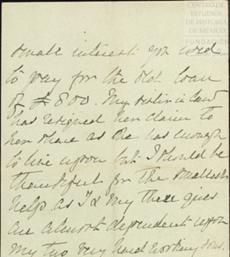 CENTRO DE
ESTUDIOS
DE HISTORIA
DE MEXICO
small interest you used
to pay for the old loan
of £800. My sister in law
has resigned her claim to
her share as she has enough
to live upon but I should be
thankful for the smallest
help as I & my three girls
are almost dependent upon
my two very hard working sons.